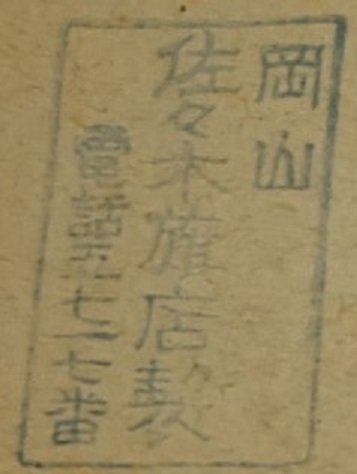 岡山
佐々木旗店製
電話 七一七番